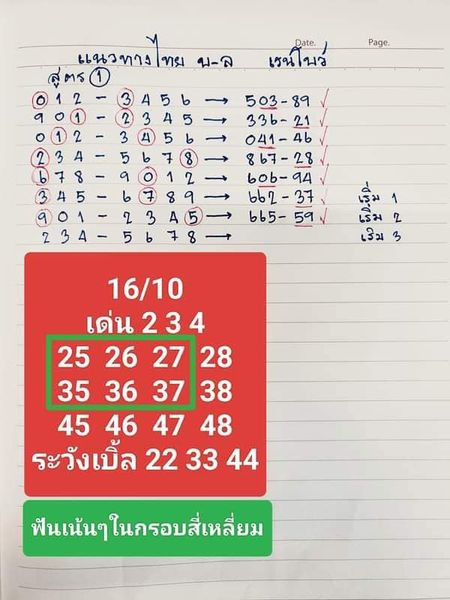 Date. Page.
แนวทางไทย บ-ล เรนโบว์
สูตร 1
012 - 3456 → 503-89 ✓
901 - 2345 → 336-21 ✓
012 - 3456 → 041-46 ✓
234 - 5678 → 867-28 ✓
678 - 9012 → 606-94 ✓
345 - 6789 → 662-37 ✓ เริ่ม 1
901 - 2345 → 665-59 ✓ เริ่ม 2
234 - 5678 → เริ่ม 3
16/10
เด่น 2 3 4
25 26 27 28
35 36 37 38
45 46 47 48
ระวังเบิ้ล 22 33 44
ฟันเน้นๆในกรอบสี่เหลี่ยม